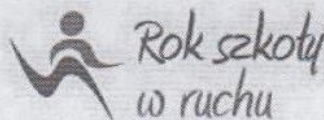 Rok szkoły
w ruchu